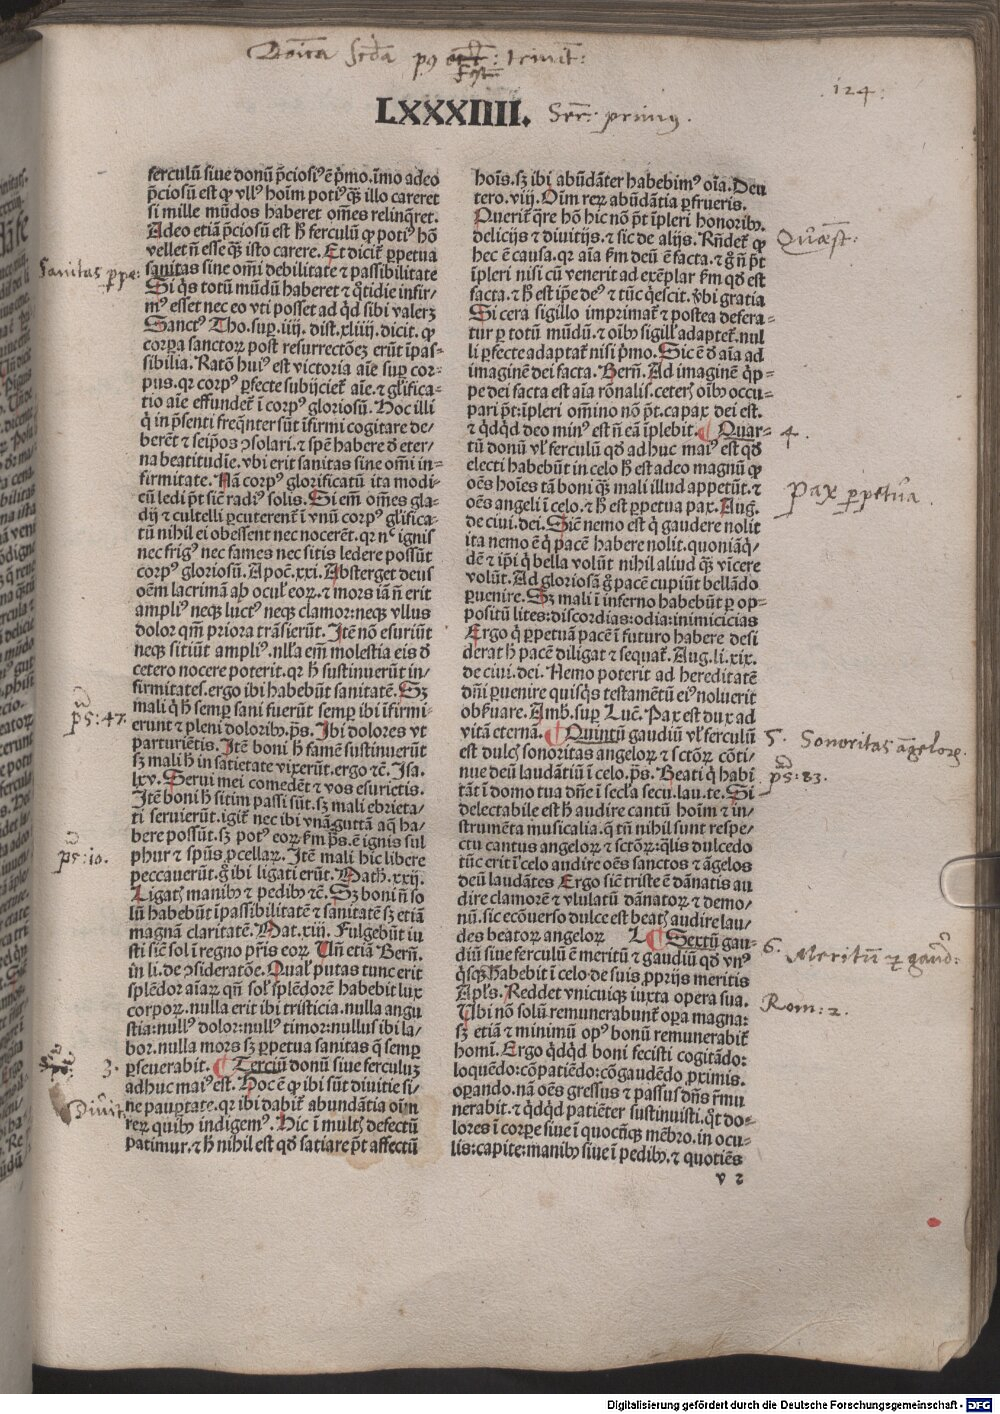 Dōica scďa pꝰ fest: trinit:
124:
LXXXIIII.
Ser: primus.
ferculū siue donū p̄ciosiꝰ ē p̄mo. īmo adeo
p̄ciosū est ꝙ vllꝰ hoīm potiꝰ qᷓꝫ illo careret
si mille mūdos haberet om̄es relinq̄ret.
Adeo etiā p̄ciosū est h̄ ferculū ꝙ potiꝰ hō
vellet n̄ esse qᷓꝫ isto carere. Et dicit̄ ꝑpetua
sanitas sine om̄i debilitate ⁊ passibilitate
Si q̇s totū mūdū haberet ⁊ q̊tidie infir-
mꝰ esset nec eo vti posset ad qd̄ sibi valerꝫ
Sanctꝰ Tho. suꝑ. iiij. dist. xliiij. dicit. ꝙ
corꝑa sanctoꝝ post resurrectōeꝫ erūt īpas-
sibilia. Ratō huiꝰ est victoria aīe suꝑ cor-
pus. qꝛ corpꝰ ꝑfecte subijciet̄ aīe. ⁊ gl̄ifica-
tio aīe effundet̄ ī corpꝰ gloriosū. Hoc illi
q̇ in p̄senti freq̄nter sūt īfirmi cogitare de-
berēt ⁊ seip̄os ꝯsolari. ⁊ spē habere ď eter-
na beatitudīe. vbi erit sanitas sine om̄i in-
firmitate. Nā corpꝰ glorificatū ita modi-
cū ledi pōt sic̄ radiꝰ solis. Si em̄ om̄es gla-
dij ⁊ cultelli ꝑcuterent̄ ī vnū corpꝰ gl̄ifica-
tū nihil ei obessent nec nocerēt. qꝛ nᶜ ignis
nec frigꝰ nec fames nec sitis ledere possūt
corpꝰ gloriosū. Apoč. xxi. Absterget deus
oēm lacrimā ab ocul̄ eoꝝ. ⁊ mors iā n̄ erit
ampliꝰ neqꝫ luctꝰ neqꝫ clamor: neqꝫ vllus
dolor qm̄ priora trāsierūt. Itē nō esuriūt
neqꝫ sitiūt ampliꝰ. nll̄a em̄ molestia eis ď
cetero nocere poterit. qꝛ h̄ sustinuerūt in-
firmitates. ergo ibi habebūt sanitatē. Sꝫ
mali q̇ h̄ semꝑ sani fuerūt semꝑ ibi īfirmi-
erunt ⁊ pleni doloribꝰ. ps̄. Ibi dolores vt
parturiētis. Itē boni h̄ famē sustinuerūt
sꝫ mali h̄ in satietate vixerūt. ergo ⁊č. Isa.
lxv. Serui mei comedēt ⁊ vos esurietis.
Itē boni h̄ sitim passi sūt. sꝫ mali ebrieta-
ti seruierūt. igit̄ nec ibi vnā guttā aq̄ ha-
bere possūt. sꝫ potꝰ eoꝝ. ẜm ps̄. ē ignis sul
phur ⁊ sp̄us ꝓcellaꝝ. Itē mali hic libere
peccauerūt. g̊ ibi ligati erūt. Math̄. xxij.
Ligatꝭ manibꝰ ⁊ pedibꝰ ⁊č. Sꝫ boni n̄ so
lū habebūt īpassibilitatē ⁊ sanitatē sꝫ etiā
magnā claritatē. Mat. xiij. Fulgebūt iu
sti sic̄ sol ī regno pr̄is eoꝝ. Vn̄ etiā Bern̄.
in li. de ꝯsideratōe. Qual̄ putas tunc erit
splēdor aīaꝝ qn̄ sol̄ splēdorē habebit lux
corpoꝝ. nulla erit ibi tristicia. nulla angu
stia: nullꝰ dolor: nullꝰ timor: nullus ibi la-
bor. nulla mors sꝫ ꝑpetua sanitas q̄ semꝑ
ꝑseuerabit. ¶ Terciū donū siue ferculuꝫ
adhuc maiꝰ est. Hoc ē ꝙ ibi sūt diuitie si-
ne pauꝑtate. qꝛ ibi dabit̄ abundātia oīm
reꝝ quibꝰ indigemꝰ. Hic ī multꝭ defectū
patimur. ⁊ h̄ nihil est qď satiare pōt affectū
hoīs. sꝫ ibi abūdāter habebimꝰ oīa. Deu
tero. viij. Oīm reꝝ abūdātia ꝑfrueris.
Querit̄ q̄re hō hic nō pōt īpleri honoribꝰ.
delicijs ⁊ diuitijs. ⁊ sic de alijs. Rn̄det̄ ꝙ
hec ē causa. qꝛ aīa ẜm deū ē facta. ⁊ g̊ n̄ pōt
īpleri nisi cū venerit ad exēplar ẜm qď est
facta. ⁊ h̄ est ip̄e deꝰ ⁊ tūc q̇escit. vbi gratia
Si cera sigillo imprimat̄ ⁊ postea defera-
tur ꝑ totū mūdū. ⁊ oībꝰ sigill̄ adaptet̄. nul
li ꝑfecte adaptat̄ nisi p̄mo. Sic ē ď aīa ad
imaginē dei facta. Bern̄. Ad imaginē q̇p-
pe dei facta est aīa rōnalis. ceterꝭ oībꝰ occu-
pari pōt: īpleri om̄ino nō pōt. capax dei est.
⁊ qḋqd̄ deo minꝰ est n̄ eā īplebit. ¶ Quar-
tū donū vl̄ ferculū qď adhuc maiꝰ est qď
electi habebūt in celo h̄ est adeo magnū ꝙ
oēs hoīes tā boni qᷓꝫ mali illud appetūt. ⁊
oēs angeli ī celo. ⁊ h̄ est ꝑpetua pax. Aug.
de ciui. dei. Sic̄ nemo est q̇ gaudere nolit
ita nemo ē q̇ pacē habere nolit. quoniā q̇-
dē ⁊ ip̄i q̇ bella volūt nihil aliud qᷓꝫ vīcere
volūt. Ad gloriosā g̊ pacē cupiūt bellādo
ꝑuenire. Sꝫ mali ī inferno habebūt ꝑ op-
positū lites: discordias: odia: inimicicias
Ergo q̇ ꝑpetuā pacē ī futuro habere desi
derat h̄ pacē diligat ⁊ sequat̄. Aug. li. xix.
de ciui. dei. Nemo poterit ad hereditatē
dn̄i ꝑuenire quisq̇s testamētū eiꝰ noluerit
obẜuare. Amb̄. suꝑ Luč. Pax est dux ad
vitā eternā. ¶ Quintū gaudiū vl̄ ferculū
est dulcꝭ sonoritas angeloꝝ ⁊ sctōꝝ cōti-
nue deū laudātiū ī celo. ps̄. Beati q̇ habi
tāt ī domo tua dn̄e ī secl̄a seču. lau. te. Si
delectabile est h̄ audire cantū hoīm ⁊ in-
strumēta musicalia. q̄ tn̄ nihil sunt respe-
ctu cantus angeloꝝ ⁊ sctōꝝ: q̄lis dulcedo
tūc erit ī celo audire oēs sanctos ⁊ āgelos
deū laudātes Ergo sic̄ triste ē dānatis au
dire clamorē ⁊ vlulatū dānatoꝝ ⁊ demo-
nū. sic ecōuerso dulce est beatꝭ audire lau-
des beatoꝝ angeloꝝ ¶ Sextū gau-
diū siue ferculū ē meritū ⁊ gaudiū qď vnꝰ
q̇sqꝫ habebit ī celo de suis ꝓprijs meritis
Apl̄s. Reddet vnicuiqꝫ iuxta opera sua.
Vbi nō solū remunerabunt̄ oꝑa magna:
sꝫ etiā ⁊ minimū opꝰ bonū remunerabit̄
homī. Ergo qḋqd̄ boni fecisti cogitādo:
loquēdo: cōpatiēdo: cōgaudēdo ꝓximis.
oꝑando. nā oēs gressus ⁊ passus dn̄s r̄mu
nerabit. ⁊ qḋqd̄ patiēter sustinuisti. q̊t do-
lores ī corꝑe siue ī quocūqꝫ mēbro. in ocu-
lis: capite: manibꝰ siue ī pedibꝰ. ⁊ quotiēs
v 2
Sanitas ꝑpe:
ps: 47.
ps: 10.
3.
Diuit:
Quæst:
4.
Pax ꝑpetua.
5. Sonoritas āgeloꝝ.
ps: 83.
6. Meritū ⁊ gaud:
Rom: 2.
Digitalisierung gefördert durch die Deutsche Forschungsgemeinschaft - DFG